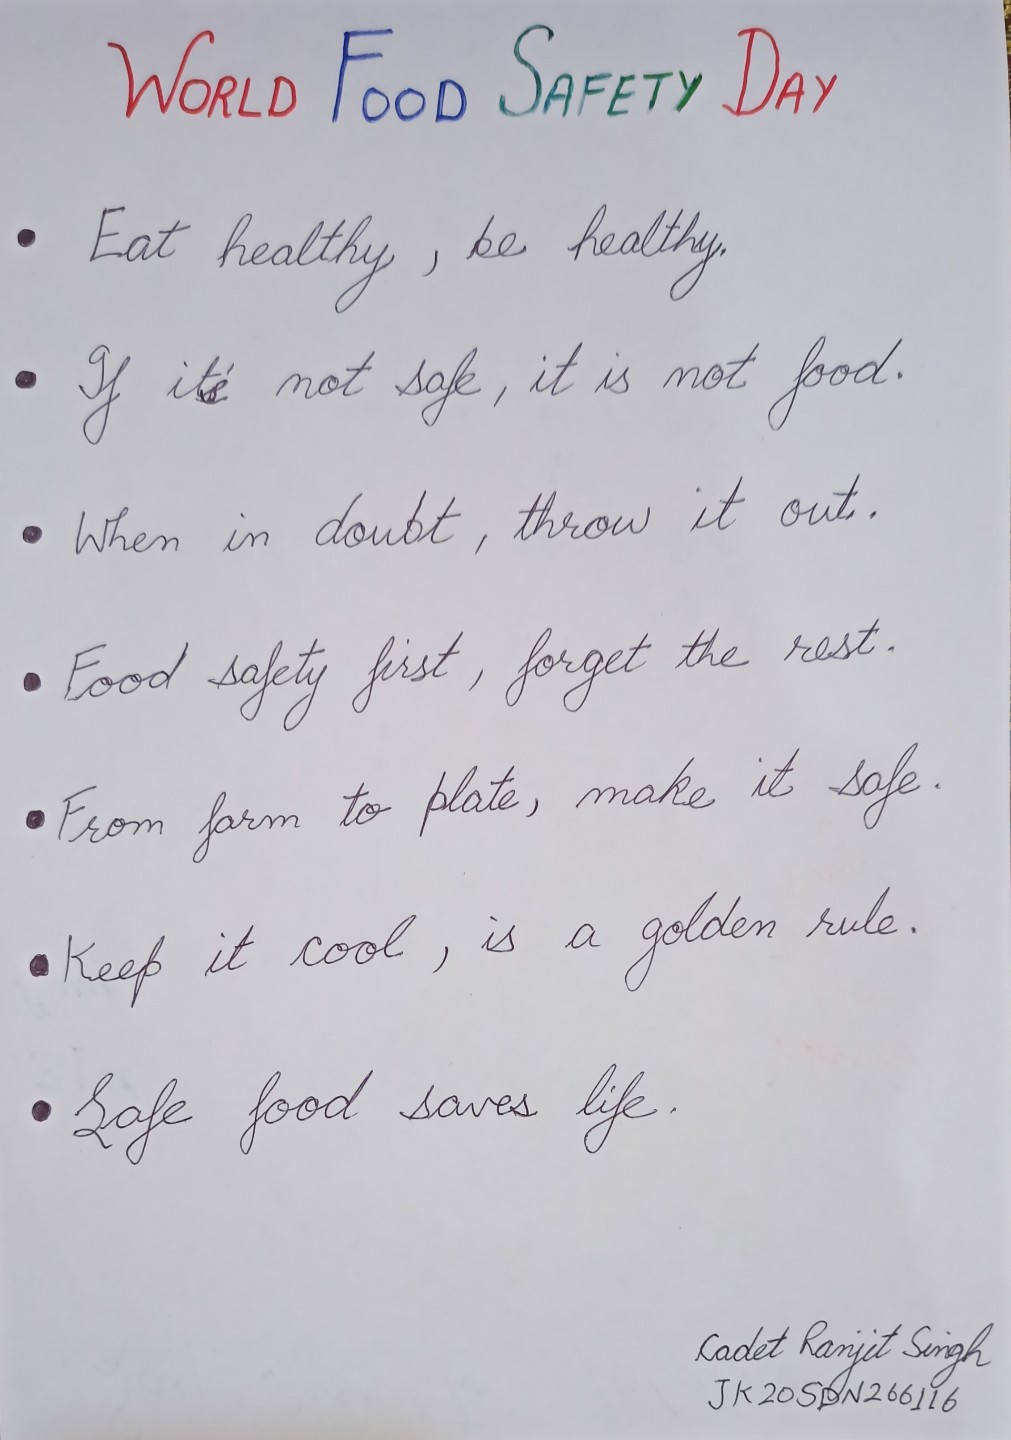 WORLD FOOD SAFETY DAY
• Eat healthy, be healthy.
• If it's not safe, it is not food.
• When in doubt, throw it out.
• Food safety first, forget the rest.
• From farm to plate, make it safe.
• Keep it cool, is a golden rule.
• Safe food saves life.
Cadet Ranjit Singh
JK20SDN266116